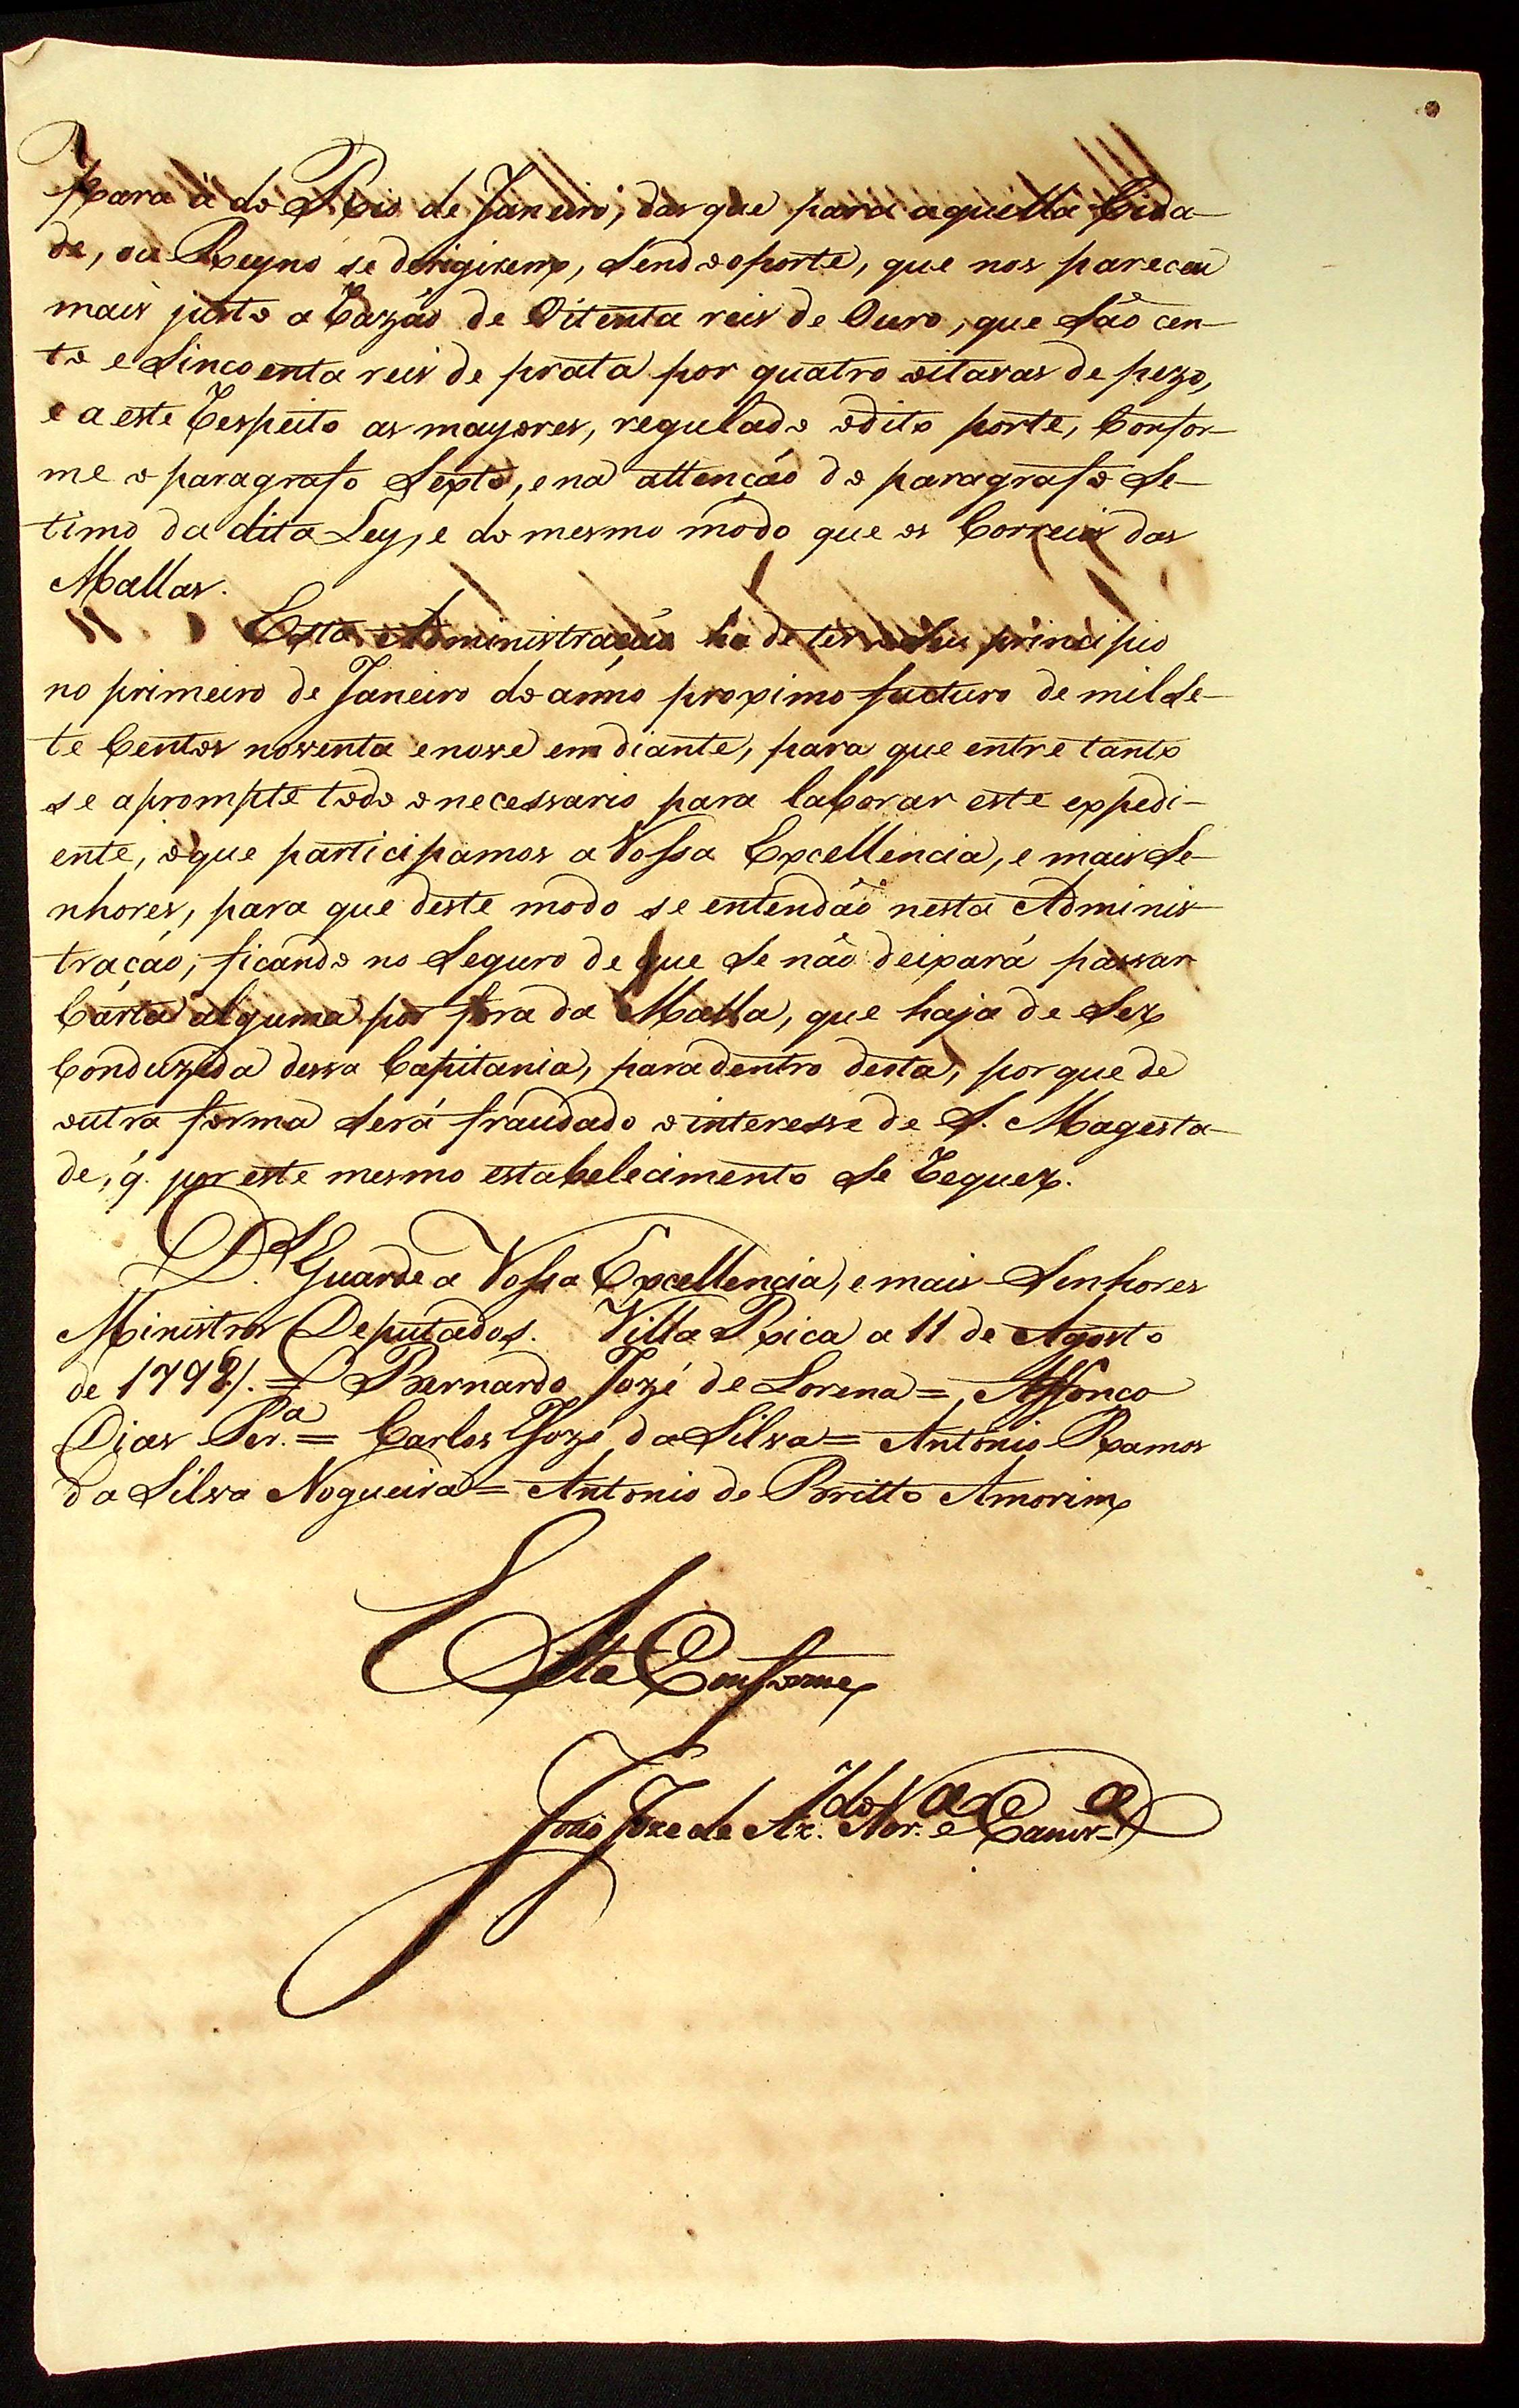 para a do Rio de Janeiro, das que para aquella Cida-
de, ou Reyno se dirigirem, sendo o porte, que nos pareceu
mais justo a razão de Oitenta reis de Ouro, que são cen-
to e sincoenta reis de prata por quatro oitavas de pezo,
e a este respeito as mayores, regulado o dito porte, Confor-
me o paragrafo Sexto, e na attenção do paragrafo Se-
timo da dita Ley, e do mesmo modo que os Correios das
Mallas.
Esta Administração ha de ter o seu principio
no primeiro de Janeiro do anno proximo futturo de mil Se-
te Centos noventa e nove em diante, para que entre tanto
se aprompte todo o necessario para laborar este expedi-
ente, o que participamos a Vossa Excellencia, e mais Se-
nhores, para que deste modo se entendão nesta Adminis-
tração, ficando no Seguro de que se não deixará passar
Carta alguma por fora da Malla, que haja de Ser
Conduzida dessa Capitania, para dentro desta, porque de
outra forma Será fraudado o interesse de S. Magesta-
de, q. por este mesmo estabelecimento se requer.
D.s Guarde a Vossa Excellencia, e mais Senhores
Ministros Deputados. Villa Rica a 11 de Agosto
de 1798 /. = Bernardo Jozé de Lorena = Affonço
Dias Per.a = Carlos Jozé da Silva = Antonio Ramos
da Silva Nogueira = Antonio de Britto Amorim
Está Conforme
João Joze de Nor.a e